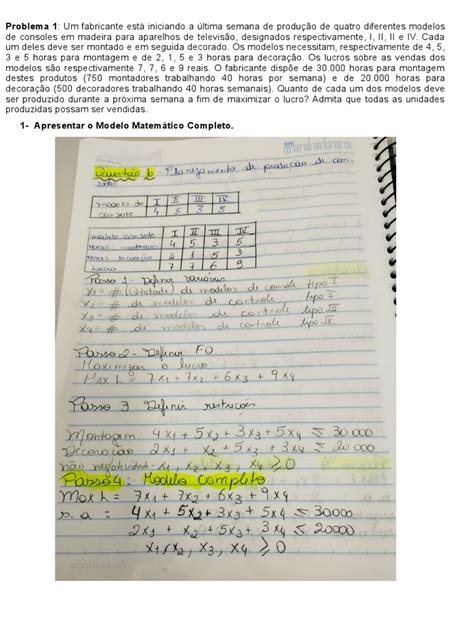 Problema 1: Um fabricante está iniciando a última semana de produção de quatro diferentes modelos
de consoles em madeira para aparelhos de televisão, designados respectivamente, I, II, II e IV. Cada
um deles deve ser montado e em seguida decorado. Os modelos necessitam, respectivamente de 4, 5,
3 e 5 horas para montagem e de 2, 1, 5 e 3 horas para decoração. Os lucros sobre as vendas dos
modelos são respectivamente 7, 7, 6 e 9 reais. O fabricante dispõe de 30.000 horas para montagem
destes produtos (750 montadores trabalhando 40 horas por semana) e de 20.000 horas para
decoração (500 decoradores trabalhando 40 horas semanais). Quanto de cada um dos modelos deve
ser produzido durante a próxima semana a fim de maximizar o lucro? Admita que todas as unidades
produzidas possam ser vendidas.
1- Apresentar o Modelo Matemático Completo.
Questão 6 - Planejamento de produção de con
soles
modelo de I II III IV
console 4 5 3 5
modelo console I II III IV
Horas montagem 4 5 3 5
Horas decoração 2 1 5 3
Lucro 7 7 6 9
Passo 1 - Definir variáveis
X1 = # (Qtidade) de modelos de console tipo I
X2 = # de modelos de controle tipo II
X3 = # de modelos de controle tipo III
X4 = # de modelos de controle tipo IV
Passo 2 - Definir FO
Maximizar o lucro
Max L = 7x1 + 7x2 + 6x3 + 9x4
Passo 3 Definir restrições
Montagem 4x1 + 5x2 + 3x3 + 5x4 ≤ 30000
Decoração 2x1 + x2 + 5x3 + 3x4 ≤ 20000
não negatividade: x1, x2, x3, x4 ≥ 0
Passo 4: Modelo Completo
Max L = 7x1 + 7x2 + 6x3 + 9x4
s.a: 4x1 + 5x2 + 3x3 + 5x4 ≤ 30000
2x1 + x2 + 5x3 + 3x4 ≤ 20000
x1, x2, x3, x4 ≥ 0